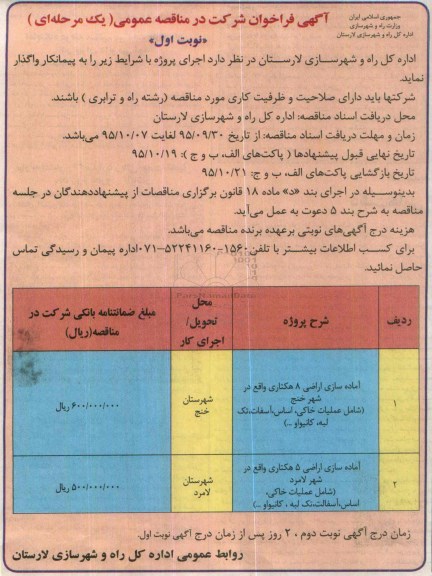 جمهوری اسلامی ایران
وزارت راه و شهرسازی
اداره کل راه و شهرسازی لارستان
آگهی فراخوان شرکت در مناقصه عمومی( یک مرحله‌ای )
«نوبت اول»
اداره کل راه و شهرسازی لارستان در نظر دارد اجرای پروژه با شرایط زیر را به پیمانکار واگذار
نماید.
شرکتها باید دارای صلاحیت و ظرفیت کاری مورد مناقصه (رشته راه و ترابری ) باشند.
محل دریافت اسناد مناقصه: اداره کل راه و شهرسازی لارستان
زمان و مهلت دریافت اسناد مناقصه: از تاریخ ۹۵/۰۹/۳۰ لغایت ۹۵/۱۰/۰۷ می‌باشد.
تاریخ نهایی قبول پیشنهادها ( پاکت‌های الف، ب و ج ): ۹۵/۱۰/۱۹
تاریخ بازگشایی پاکت‌های الف، ب و ج: ۹۵/۱۰/۲۱
بدینوسیله در اجرای بند «د» ماده ۱۸ قانون برگزاری مناقصات از پیشنهاددهندگان در جلسه
مناقصه به شرح بند ۵ دعوت به عمل می‌آید.
هزینه درج آگهی‌های نوبتی برعهده برنده مناقصه می‌باشد.
برای کسب اطلاعات بیشتر با تلفن:۱۵۶۰-۵۲۲۴۱۱۶۰-۰۷۱اداره پیمان و رسیدگی تماس
حاصل نمائید.
ردیف
شرح پروژه
محل
تحویل/
اجرای کار
مبلغ ضمانتنامه بانکی شرکت در
مناقصه(ریال)
۱
آماده سازی اراضی ۸ هکتاری واقع در
شهر خنج
(شامل عملیات خاکی، اساس،آسفالت،تک
لبه، کانیواو ..)
شهرستان
خنج
۶۰۰/۰۰۰/۰۰۰ ریال
۲
آماده سازی اراضی ۵ هکتاری واقع در
شهر لامرد
(شامل عملیات خاکی،
اساس،آسفالت،تک لبه ، کانیواو ..)
شهرستان
لامرد
۵۰۰/۰۰۰/۰۰۰ ریال
زمان درج آگهی نوبت دوم ۲۰ روز پس از زمان درج آگهی نوبت اول.
روابط عمومی اداره کل راه و شهرسازی لارستان